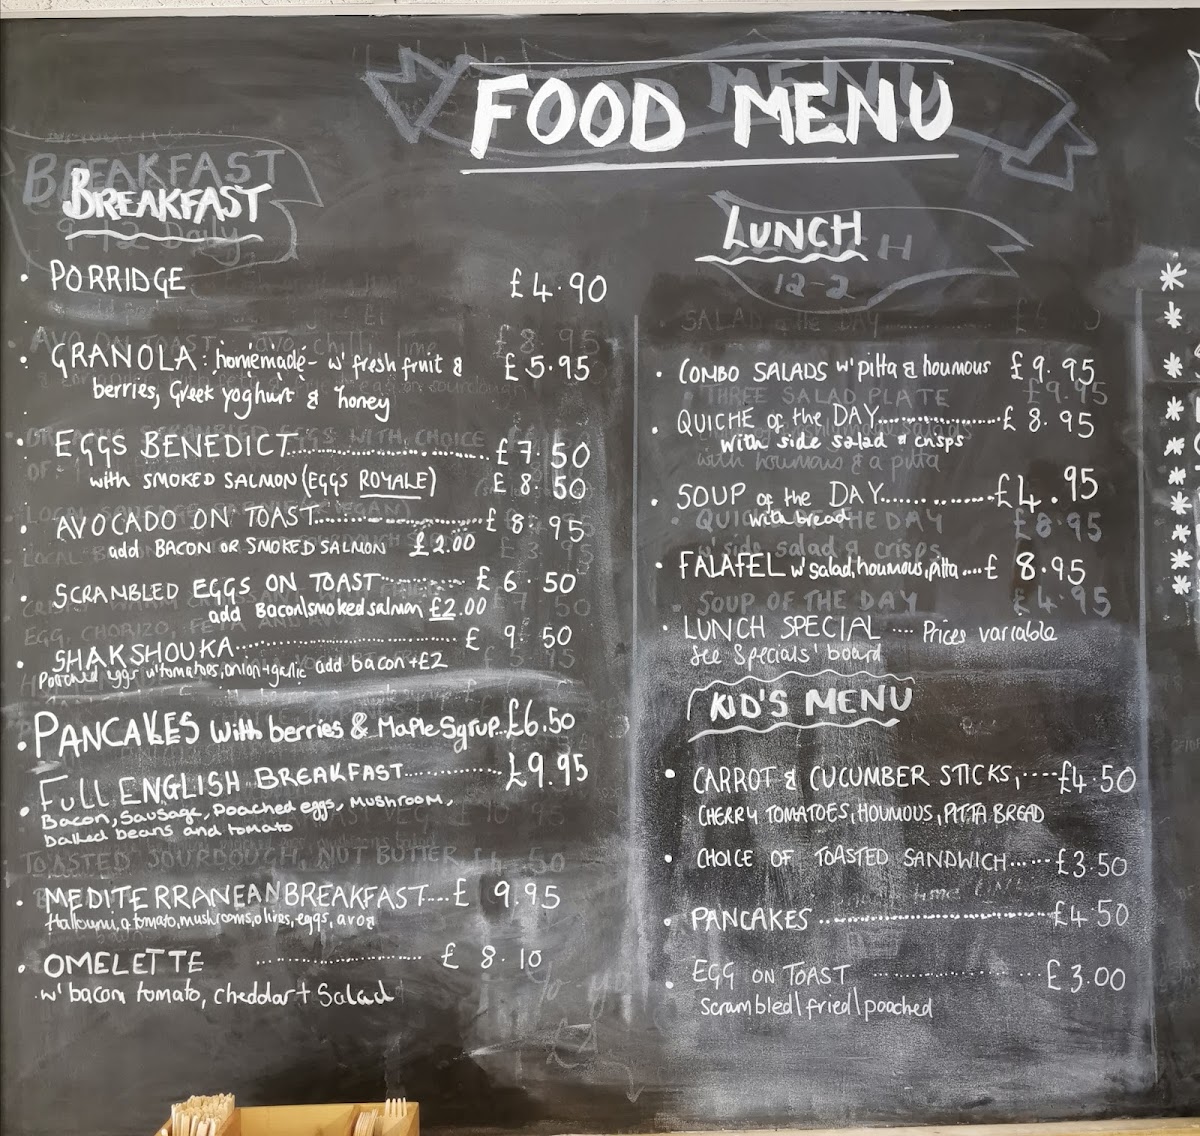 FOOD MENU
BREAKFAST
• PORRIDGE £4.90
• GRANOLA: homemade - w' fresh fruit & £5.95
berries, Greek yoghurt & honey
• EGGS BENEDICT £7.50
with SMOKED SALMON (EGGS ROYALE) £8.50
• AVOCADO ON TOAST £8.95
add BACON OR SMOKED SALMON £2.00
• SCRAMBLED EGGS ON TOAST £6.50
add Bacon\smoked salmon £2.00
• SHAKSHOUKA £9.50
Poached eggs w' tomatoes, onion + garlic add bacon + £2
• PANCAKES with berries & Maple Syrup.. £6.50
• Full ENGLISH BREAKFAST £9.95
Bacon, Sausage, Poached eggs, Mushroom,
baked beans and tomato
• MEDITERRANEAN BREAKFAST.... £9.95
tomato, mushrooms, olives, eggs,
• OMELETTE £8.10
w' bacon, tomato, cheddar + Salad
LUNCH
12-2
• COMBO SALADS w' pitta & houmous £9.95
• QUICHE of the DAY £8.95
with side salad & crisps
• SOUP of the DAY £4.95
with bread
• FALAFEL w' salad, houmous, pitta .... £8.95
• LUNCH SPECIAL .... Prices variable
See 'Specials' board
KID'S MENU
• CARROT & CUCUMBER STICKS, .... £4.50
CHERRY TOMATOES, HOUMOUS, PITTA BREAD
• CHOICE OF TOASTED SANDWICH...... £3.50
• PANCAKES £4.50
• EGG ON TOAST £3.00
Scrambled\fried\poached